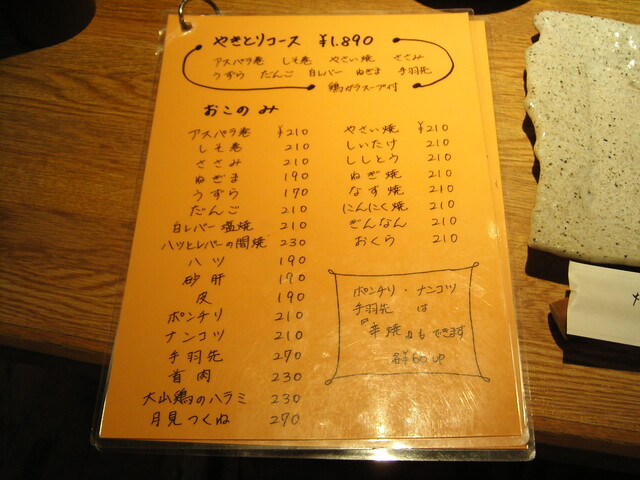 やきとりコース ¥1.890
アスパラ巻 しそ巻 やさい焼 ささみ
うずら だんご 白レバー ねぎま 手羽先
鶏ガラスープ付
おこのみ
アスパラ巻 ¥210
しそ巻 210
ささみ 210
ねぎま 190
うずら 170
だんご 210
白レバー塩焼 210
ハツとレバーの間焼 230
ハツ 190
砂肝 190
皮 190
ポンチリ 210
ナンコツ 210
手羽先 270
首肉 230
大山鶏のハラミ 230
月見つくね 270
やさい焼 ¥210
しいたけ 210
ししとう 210
ねぎ焼 210
なす焼 210
にんにく焼 210
ぎんなん 210
おくら 210
ポンチリ・ナンコツ
手羽先 は
辛焼 もできます
各¥60 UP